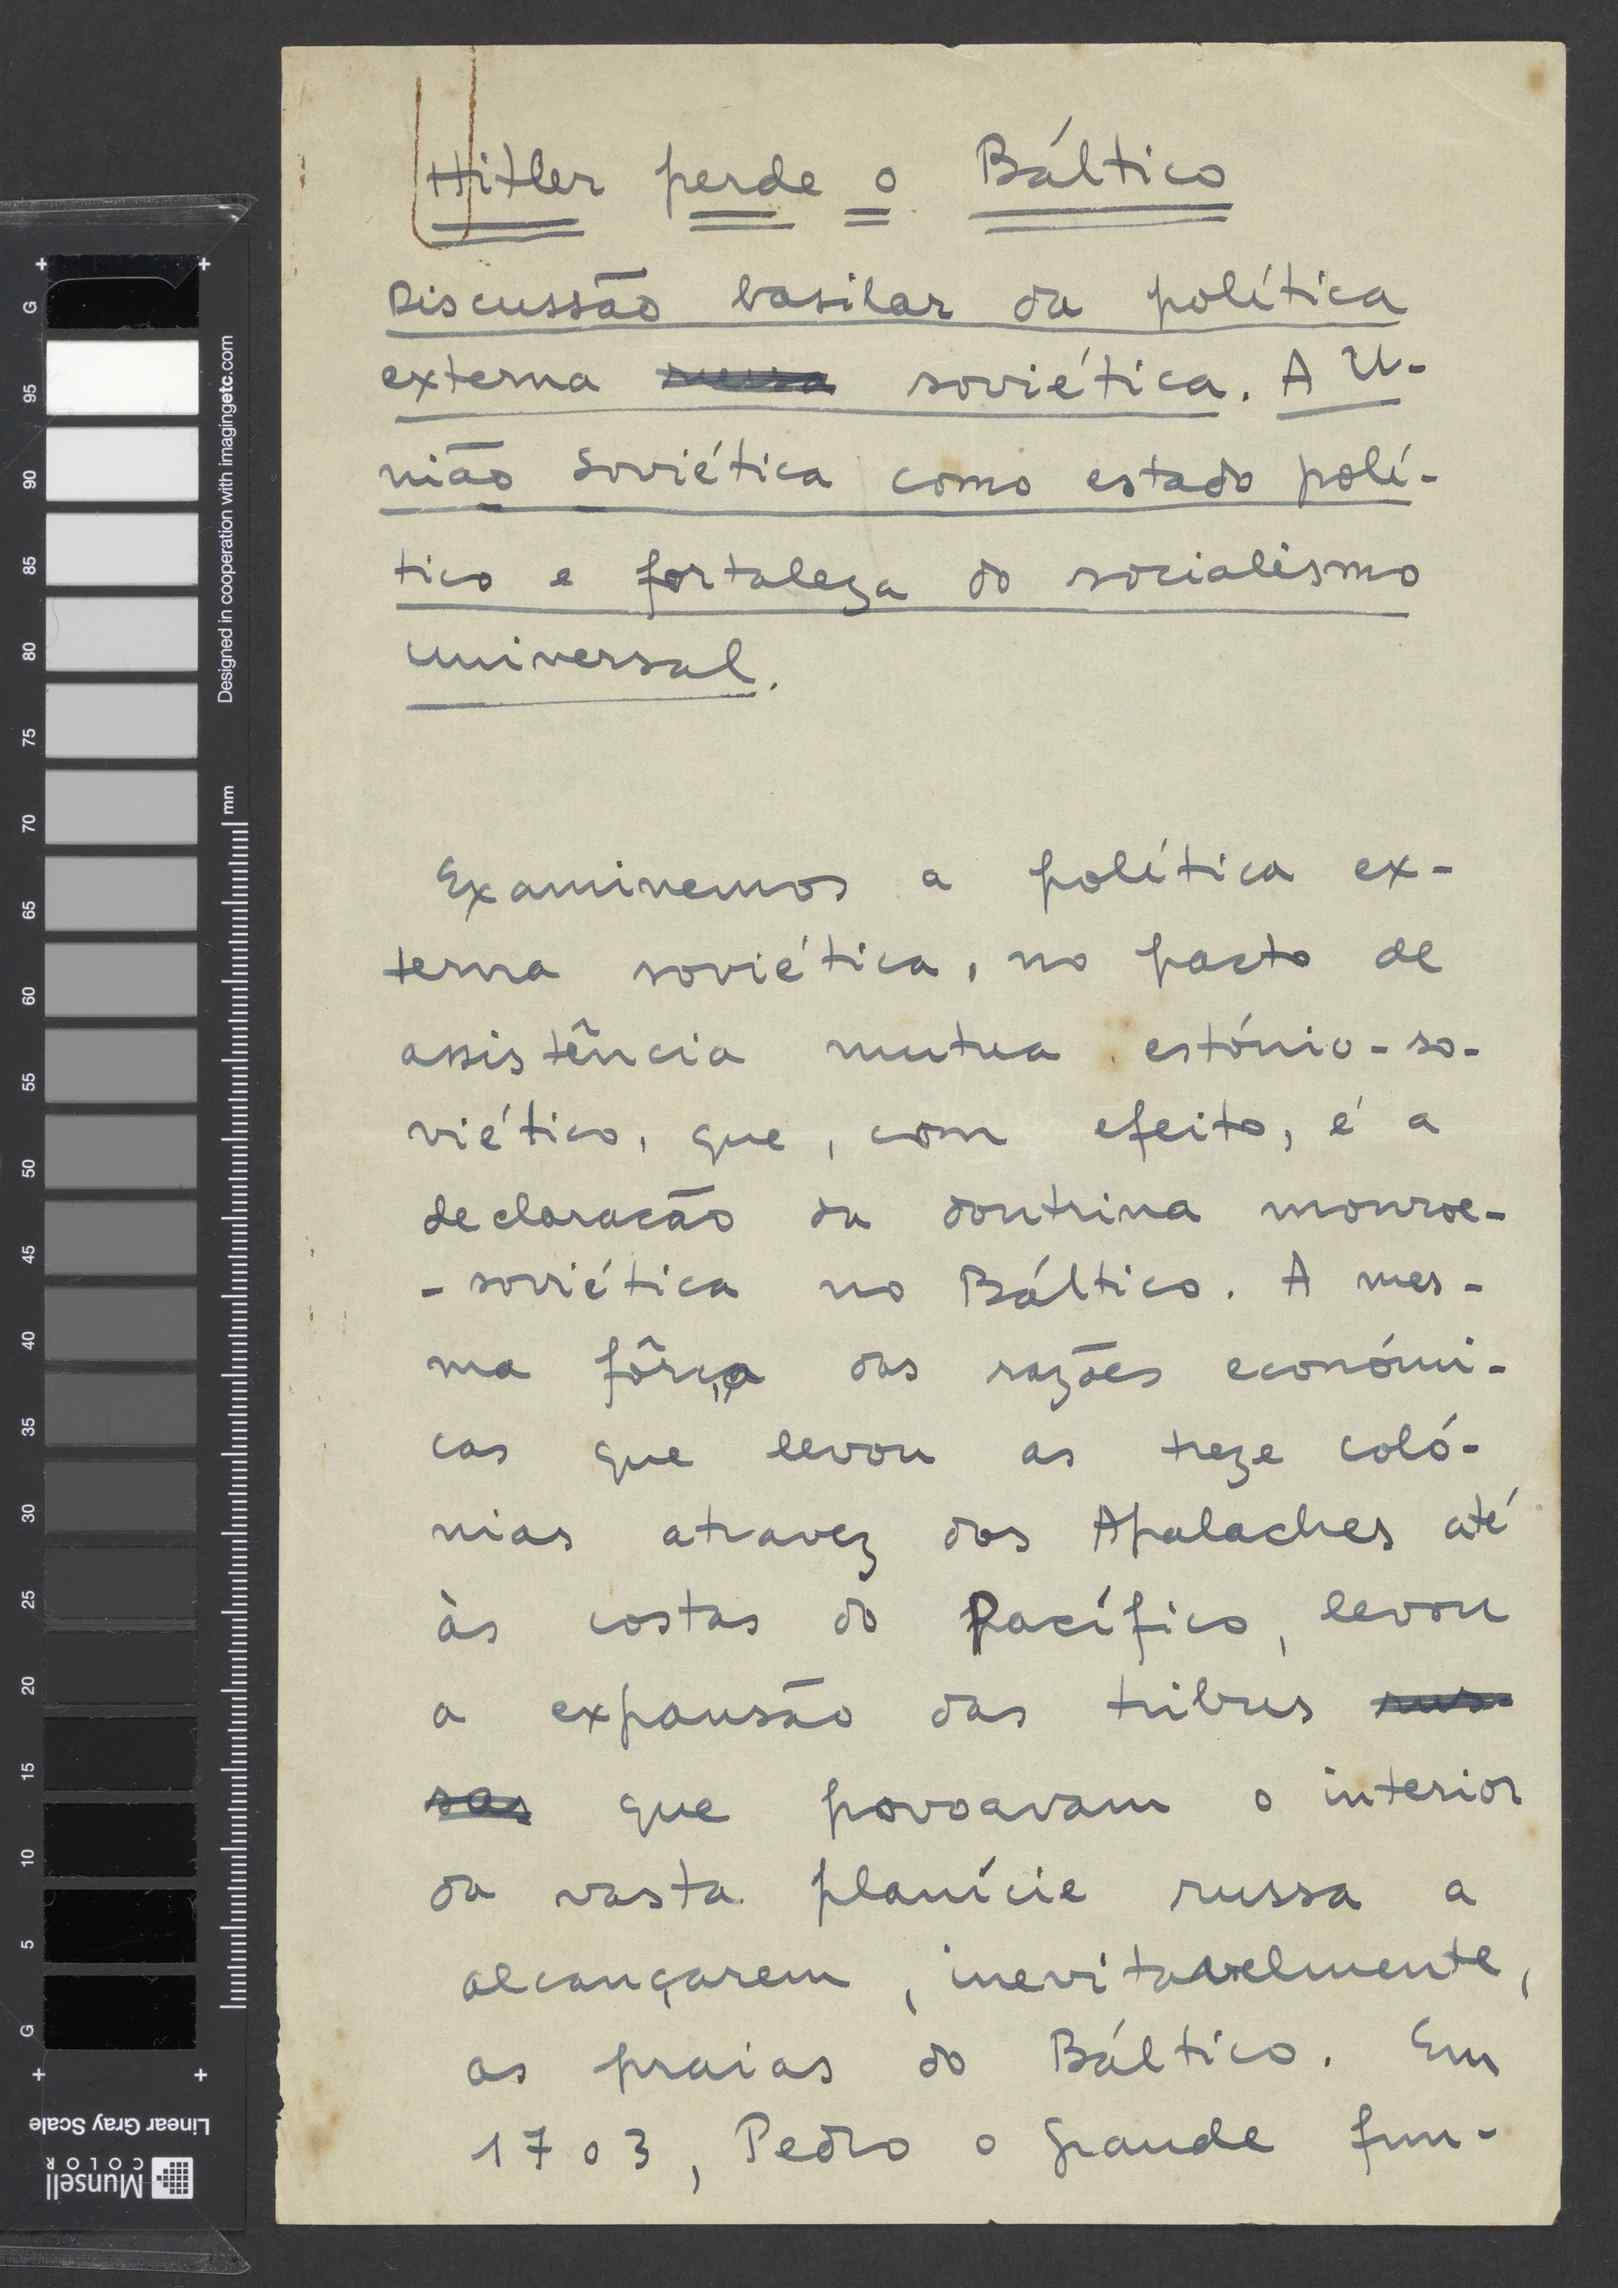 Hitler perde o Báltico
Discussão basilar da política
externa russa soviética. A U-
nião Soviética como estado polí-
tico e fortaleza do socialismo
universal.
Examinemos a política ex-
terna soviética, no pacto de
assistência mutua estónio-so-
viético, que, com efeito, é a
declaração da doutrina monroe-
-soviética no Báltico. A mes-
ma fôrça das razões económi-
cas que levou as treze coló-
nias atravez dos Apalaches até
às costas do Pacífico, levou
a expansão das tribus rus-
sas que povoavam o interior
da vasta planície russa a
alcançarem, inevitavelmente,
as praias do Báltico. Em
1703, Pedro o Grande fun-
Designed in cooperation with imagingetc.com
mm
G
95
90
85
80
75
70
65
60
55
50
45
40
35
30
25
20
15
10
5
G
Linear Gray Scale
Munsell
COLOR